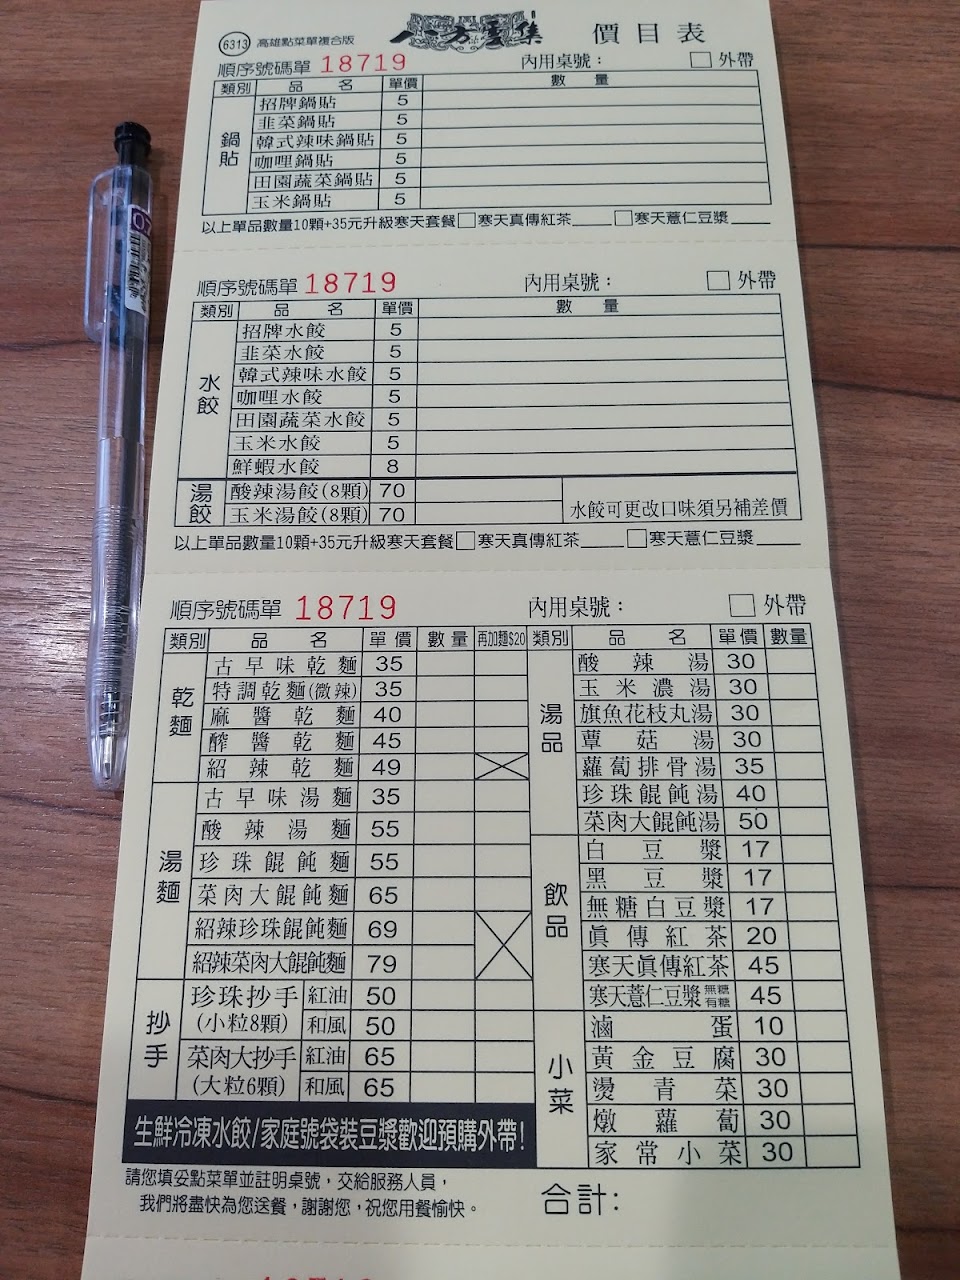 6313 高雄點菜單複合版 八方雲集 價目表
順序號碼單 18719 內用桌號： □ 外帶
類別 品名 單價 數量
鍋貼
招牌鍋貼 5
韭菜鍋貼 5
韓式辣味鍋貼 5
咖哩鍋貼 5
田園蔬菜鍋貼 5
玉米鍋貼 5
以上單品數量10顆+35元升級寒天套餐 □寒天真傳紅茶____ □寒天薏仁豆漿____
順序號碼單 18719 內用桌號： □ 外帶
類別 品名 單價 數量
水餃
招牌水餃 5
韭菜水餃 5
韓式辣味水餃 5
咖哩水餃 5
田園蔬菜水餃 5
玉米水餃 5
鮮蝦水餃 8
湯餃
酸辣湯餃(8顆) 70
玉米湯餃(8顆) 70
水餃可更改口味須另補差價
以上單品數量10顆+35元升級寒天套餐 □寒天真傳紅茶____ □寒天薏仁豆漿____
順序號碼單 18719 內用桌號： □ 外帶
類別 品名 單價 數量 再加麵$20
乾麵
古早味乾麵 35
特調乾麵(微辣) 35
麻醬乾麵 40
醡醬乾麵 45
紹辣乾麵 49
湯麵
古早味湯麵 35
酸辣湯麵 55
珍珠餛飩麵 55
菜肉大餛飩麵 65
紹辣珍珠餛飩麵 69
紹辣菜肉大餛飩麵 79
抄手
珍珠抄手 紅油 50
(小粒8顆) 和風 50
菜肉大抄手 紅油 65
(大粒6顆) 和風 65
類別 品名 單價 數量
湯品
酸辣湯 30
玉米濃湯 30
旗魚花枝丸湯 30
蕈菇湯 30
蘿蔔排骨湯 35
珍珠餛飩湯 40
菜肉大餛飩湯 50
飲品
白豆漿 17
黑豆漿 17
無糖白豆漿 17
真傳紅茶 20
寒天真傳紅茶 45
寒天薏仁豆漿 無糖 有糖 45
小菜
滷蛋 10
黃金豆腐 30
燙青菜 30
燉蘿蔔 30
家常小菜 30
生鮮冷凍水餃/家庭號袋裝豆漿歡迎預購外帶!
請您填妥點菜單並註明桌號，交給服務人員，
我們將盡快為您送餐，謝謝您，祝您用餐愉快。
合計：